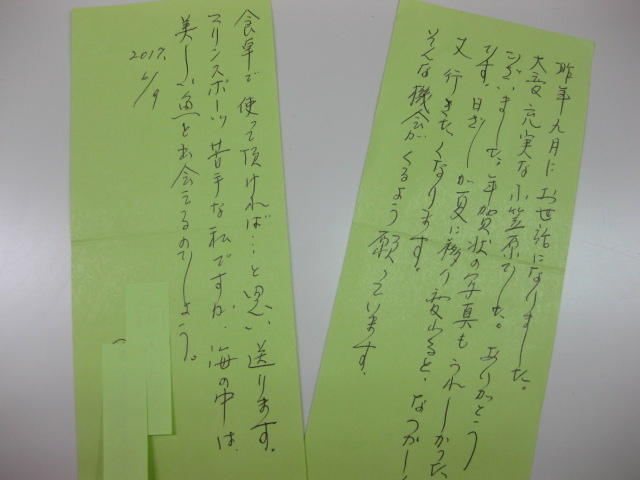 昨年九月にお世話になりました。
大変充実な小笠原でした。ありがとう
ございました。年賀状の写真もうれしかった
です。日ざしが夏に移り変ると、なつかし
又行きたくなります。
そんな機会がくるよう願っています。
食卓で使って頂ければ…と思い送ります。
マリンスポーツ苦手な私ですが、海の中は
美しい魚と出会えるのでしょう。
2017.
6/9